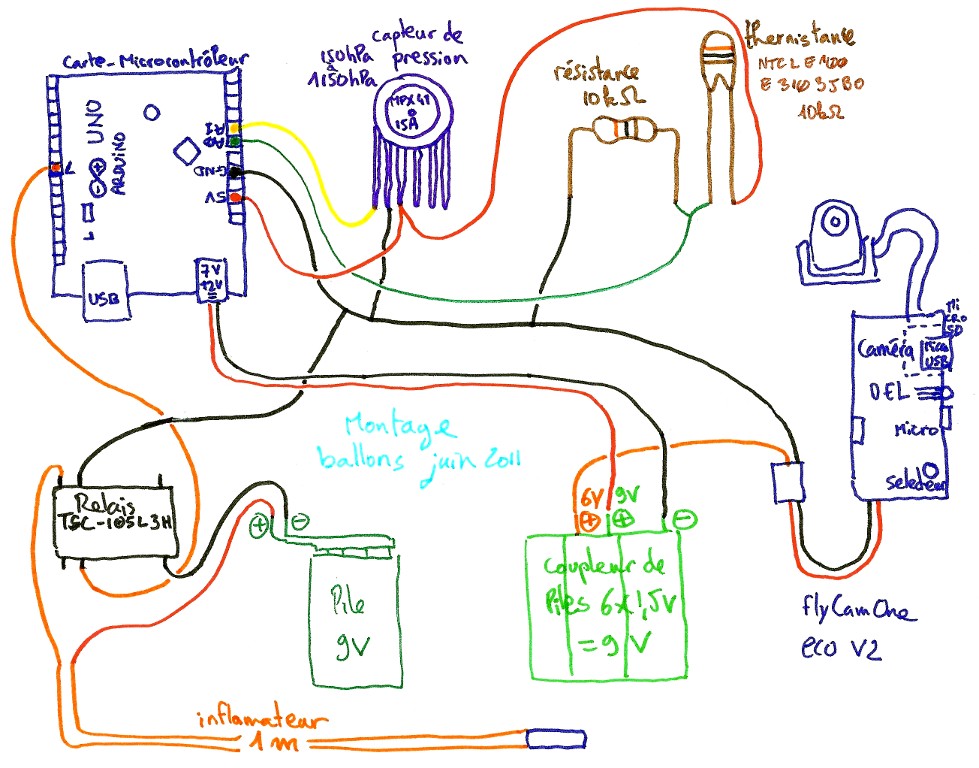 Carte-Microcontrôleur
UNO
ARDUINO
A1
A0
GND
5V
7
L
USB
7V
12V
capteur de
150hPa pression
à
1150hPa
MPX41
15A
résistance
10kΩ
thermistance
NTCLE100
E3103JB0
10kΩ
Micro
SD
Caméra
Micro
USB
DEL
Micro
selecteur
flyCamOne
eco V2
Montage
ballons juin 2011
Relais
TSC-105L3H
+ -
Pile
9V
6V 9V
+ + -
coupleur de
Piles 6x1,5V
= 9V
inflamateur
1m